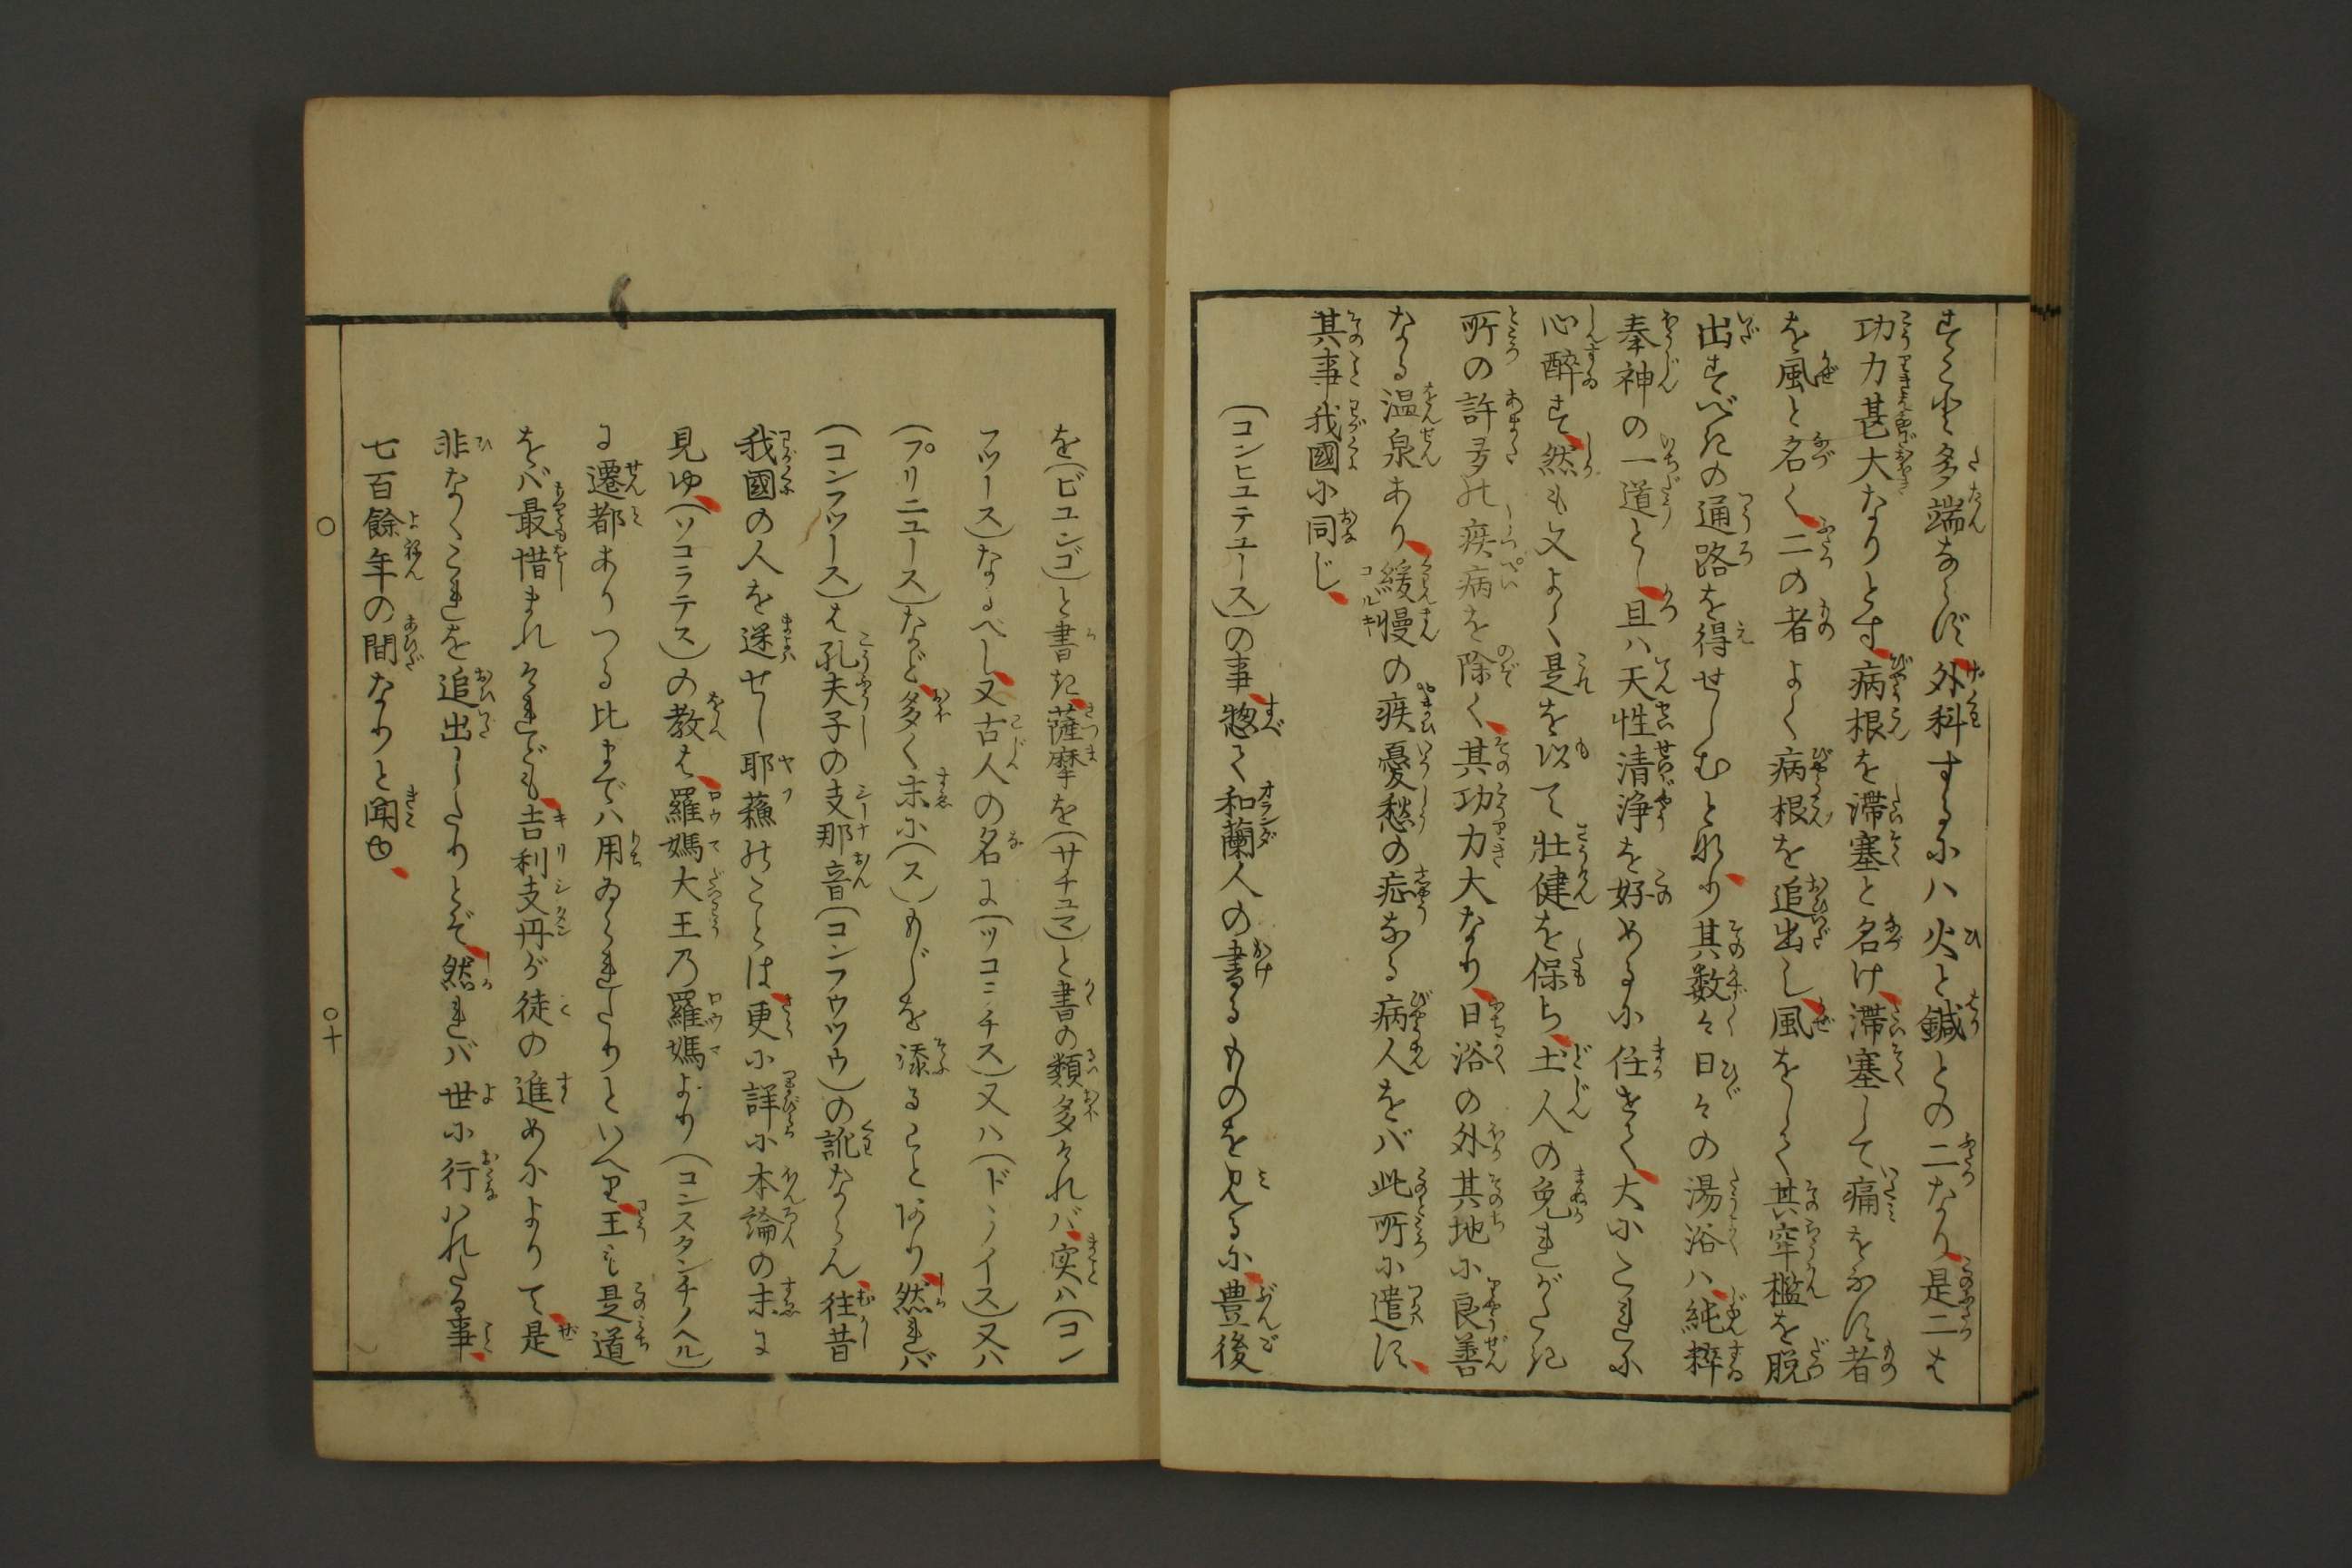 すくなく多端ならず外科するにハ火と鍼との二なり是二は
功力甚大なりとす病根を滞塞と名け滞塞して痛をなす者
を風と名く二の者よく病根を追出し風をして其牢檻を脱
出すべきの通路を得せしむと此り其数々日々の湯浴ハ純粋
奉神の一道とし且ハ天性清浄を好めるに任せて大にこれに
心酔す然も又よく是を以て壮健を保ち土人の免れがたき
所の許多の疾病を除く其功力大なり日浴の外其地に良善
なる温泉あり緩慢の疾憂愁の症なる病人をバ此所に遣す
其事我國に同じ
(コンヒユテユース)の事惣て和蘭人の書るものを見るに豊後
を(ビユンゴ)と書き薩摩を(サチユマ)と書の類多けれバ実ハ(コン
フツース)なるべし又古人の名に(ツコニチス)又ハ(ドヽノイス)又ハ
(プリニユース)など多く末に(ス)もじを添ることあり然れバ
(コンフツース)は孔夫子の支那音(コンフウツウ)の訛ならん往昔
我國の人を迷せし耶蘓のことは更に詳に本論の末に
見ゆ(ソコラテス)の教は羅媽大王乃羅媽より(コンスタンチノヘル)
に遷都ありつる比までハ用ゐられたりといへり王も是道
をバ最惜まれけれども吉利支丹が徒の進めによりて是
非なくこれを追出したりとぞ然れバ世に行ハれたる事
七百餘年の間なりと聞也
〇十